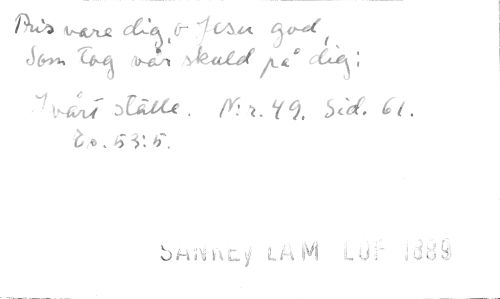 Pris vare dig, o Jesu god,
Som tog vår skuld på dig;
I vårt ställe. N:r. 49. Sid. 61.
Es. 53:5.
SANKEY LAM LUF 1889